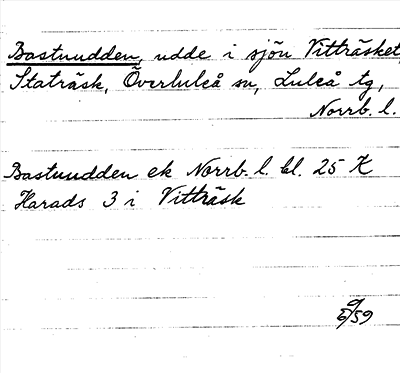 Bastuudden, udde i sjön Vitträsket,
Staträsk, Överluleå sn, Luleå tg,
Norrb. l.
Bastuudden ek Norrb. l. bl. 25 K
Harads 3 i Vitträsk